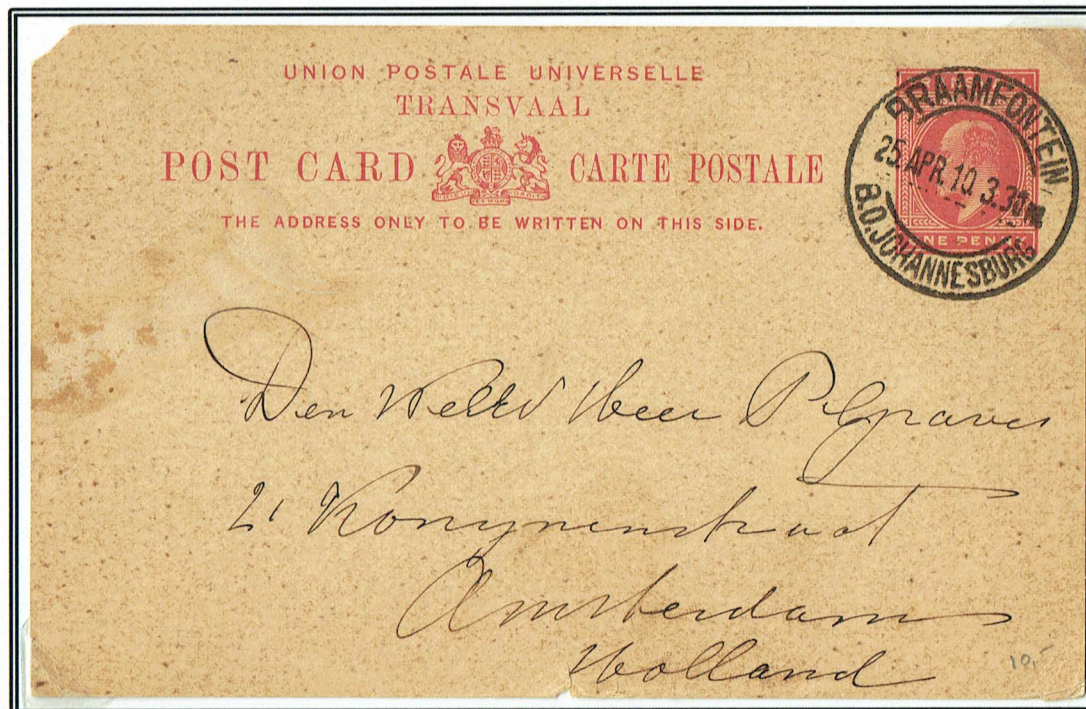 UNION POSTALE UNIVERSELLE
TRANSVAAL
POST CARD CARTE POSTALE
THE ADDRESS ONLY TO BE WRITTEN ON THIS SIDE.
BRAAMFONTEIN
25 APR. 10 3.30
B.O. JOHANNESBURG
ONE PENNY
Den Heer
21 Konynenstraat
Amsterdam
Holland
10,-